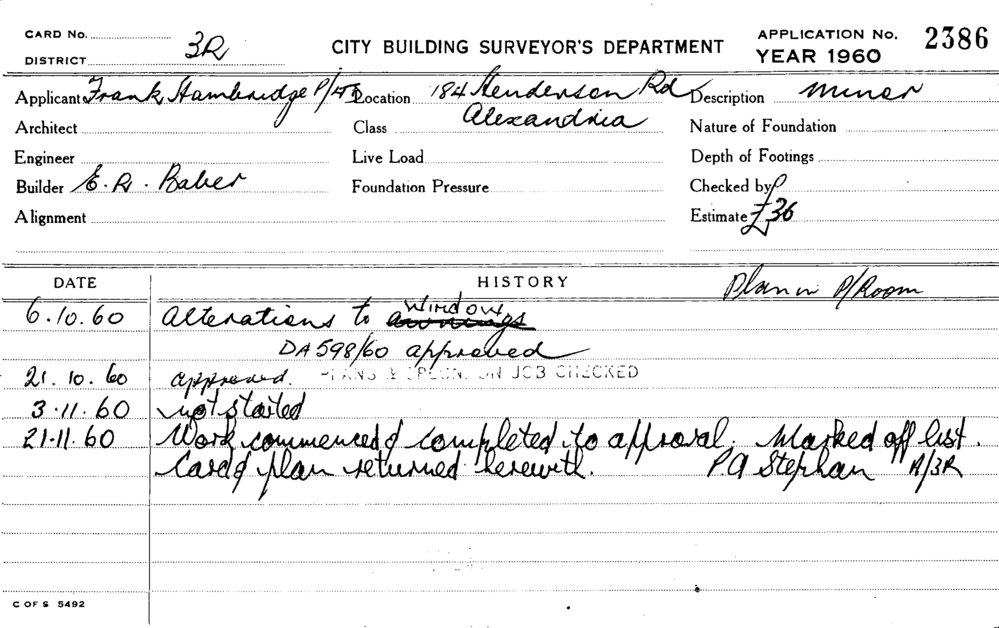 CARD No.
DISTRICT 3R
CITY BUILDING SURVEYOR'S DEPARTMENT
APPLICATION No. 2386
YEAR 1960
Applicant Frank Hambridge P/L Location 184 Henderson Rd Description Minor
Alexandria
Architect Class Nature of Foundation
Engineer Live Load Depth of Footings
Builder E. R. Baber Foundation Pressure Checked by
Alignment Estimate £36
DATE HISTORY Plan in P/Room
6.10.60 Alterations to awnings window
DA 598/60 approved
21.10.60 approved. PLANS & SPECN. ON JOB CHECKED
3.11.60 not started
21.11.60 Work commenced & completed to approval. Marked off list.
Card & plan returned herewith. P.A Stephan A/3R
C OF S 5492